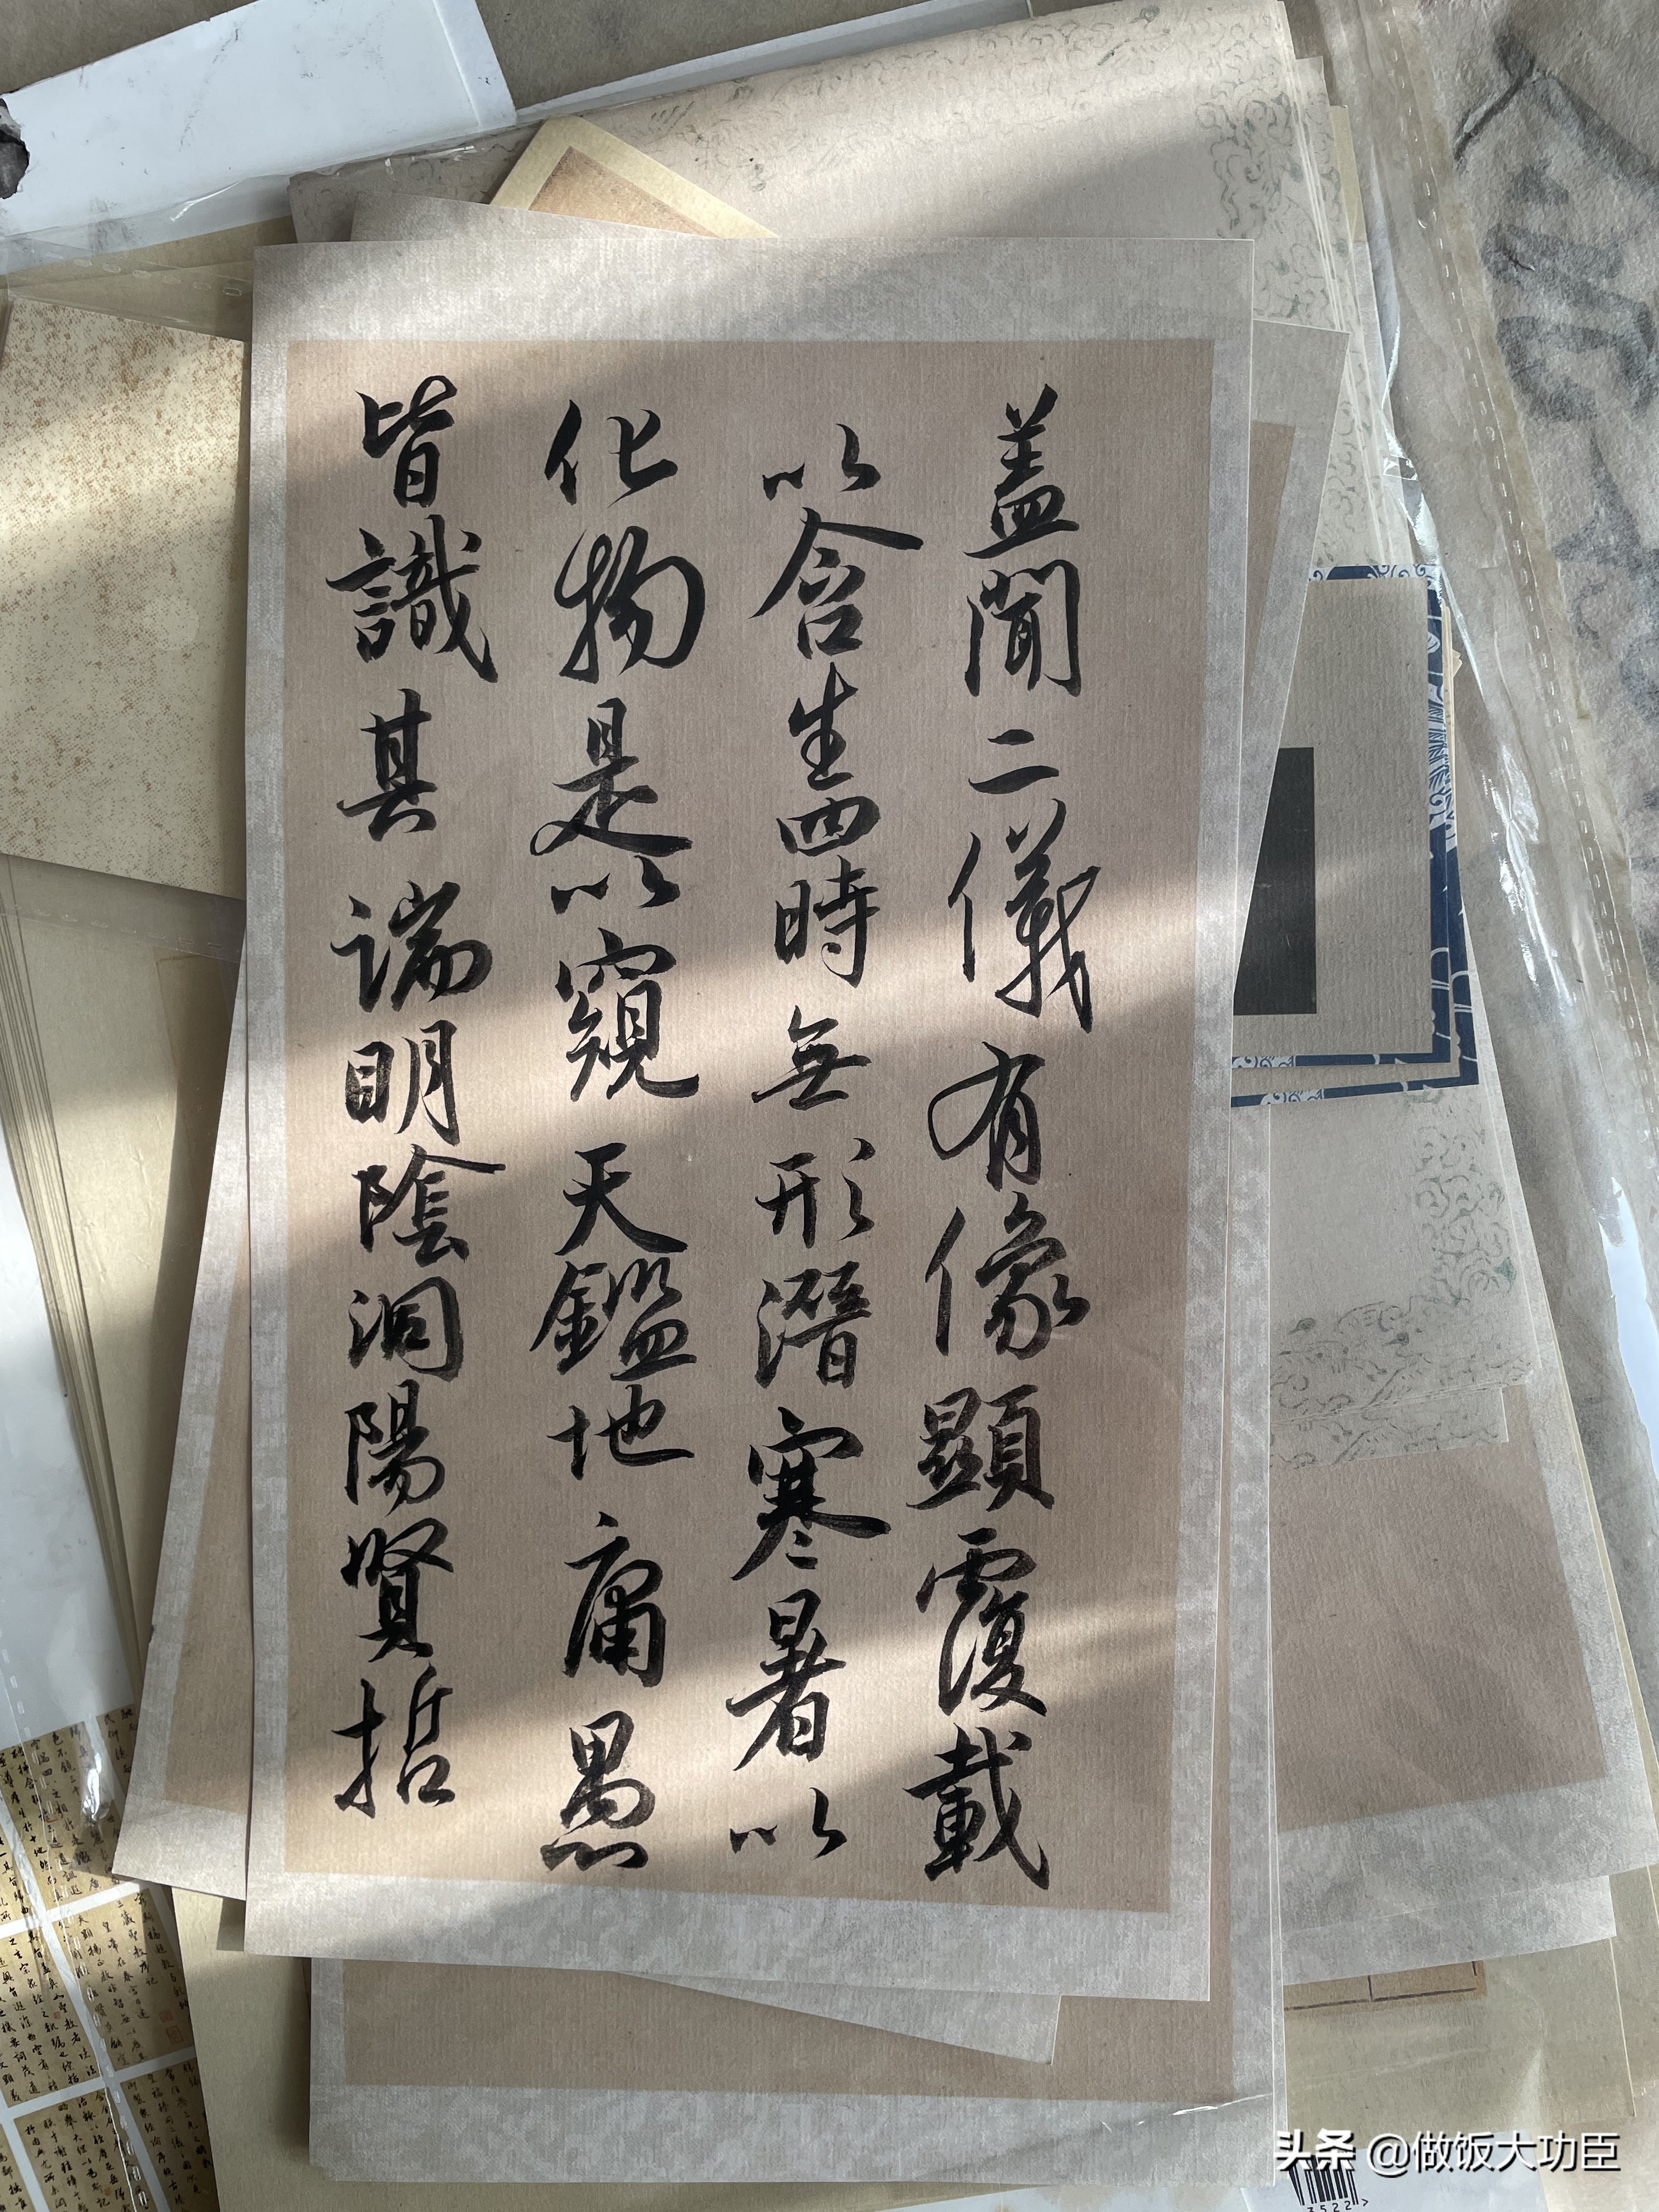 盖聞二儀有像顯覆載
以含生四時無形潛寒暑以
化物是以窺天鑑地庸愚
皆識其端明陰洞陽賢哲
头条 @做饭大功臣
3522>